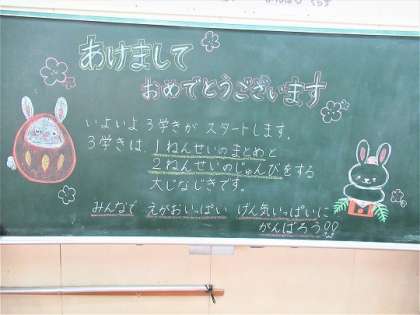 あけまして
おめでとうございます
いよいよ3学きが スタートします。
3学きは、1ねんせいのまとめと
2ねんせいのじゅんびをする
大じなじきです。
みんなで えがおいっぱい げん気いっぱいに
がんばろう!!